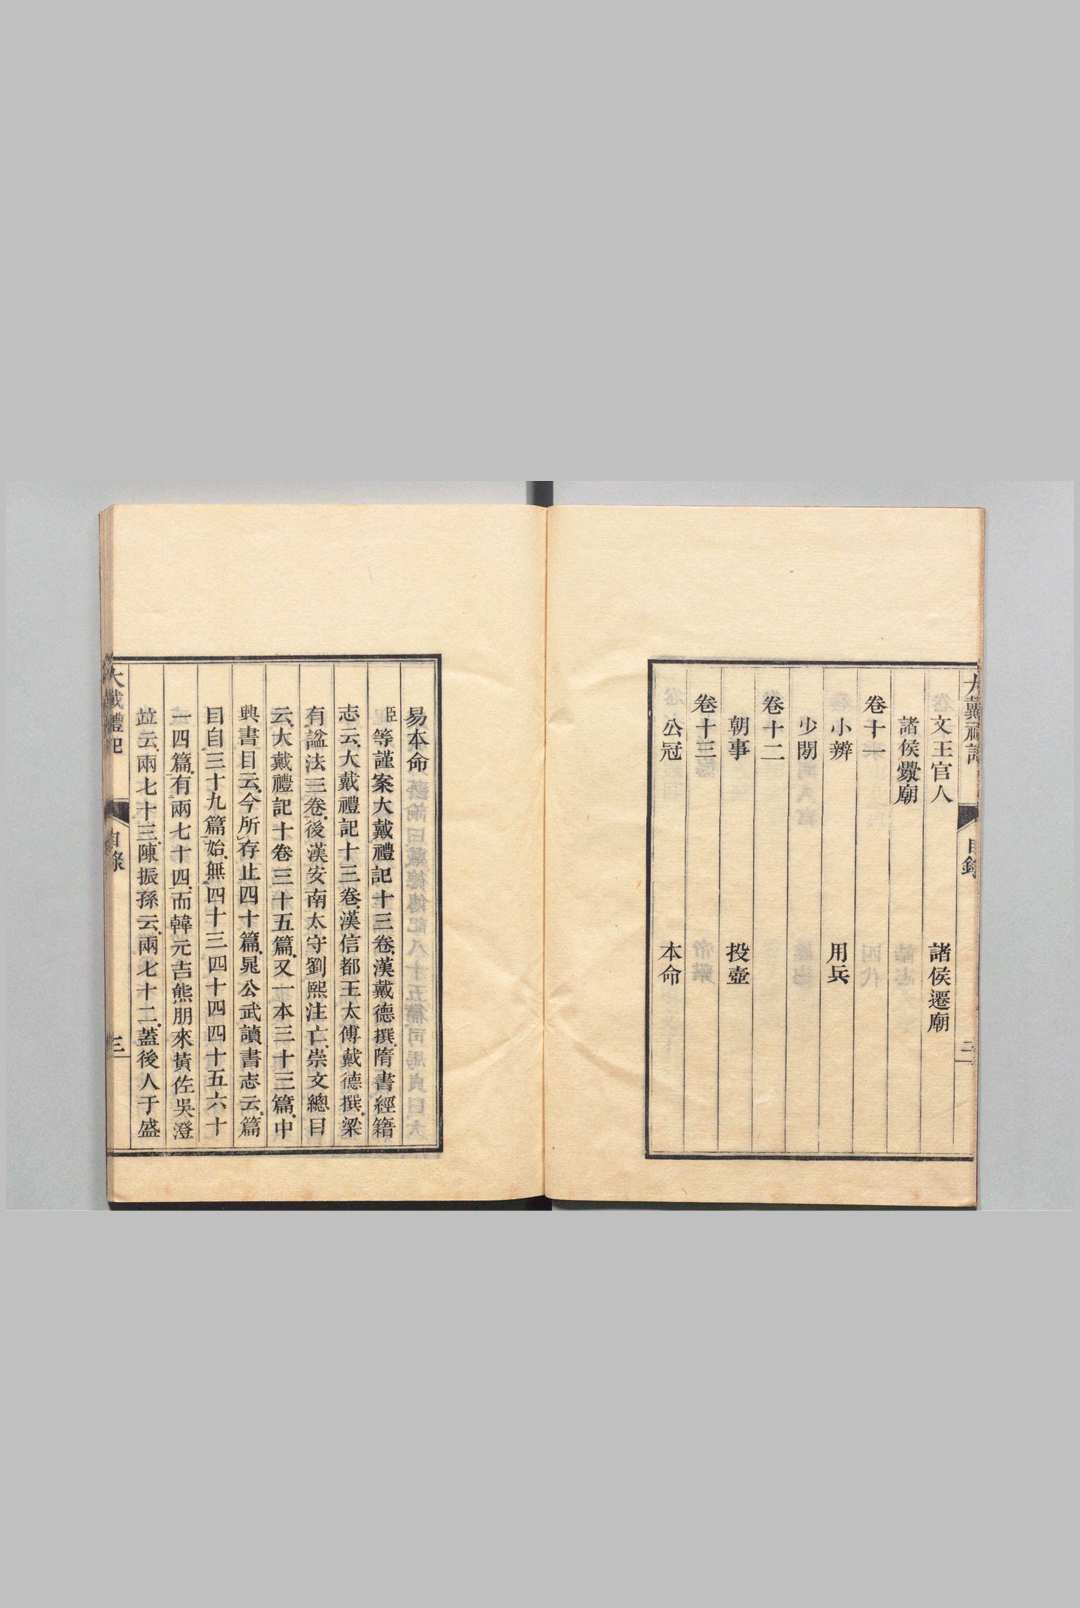 大戴禮記
目錄
二
文王官人 諸侯遷廟
諸侯釁廟
卷十一
小辨 用兵
少閒
卷十二
朝事 投壺
卷十三
公冠 本命
易本命
臣等謹案大戴禮記十三卷漢戴德撰隋書經籍
志云大戴禮記十三卷漢信都王太傅戴德撰梁
有諡法三卷後漢安南太守劉熙注亡崇文總目
云大戴禮記十卷三十五篇又一本三十三篇中
興書目云今所存止四十篇晁公武讀書志云篇
目自三十九篇始無四十三四十四四十五六十
一四篇有兩七十四而韓元吉熊朋來黃佐吳澄
竝云兩七十三陳振孫云兩七十二蓋後人于盛
大戴禮記
目錄
三